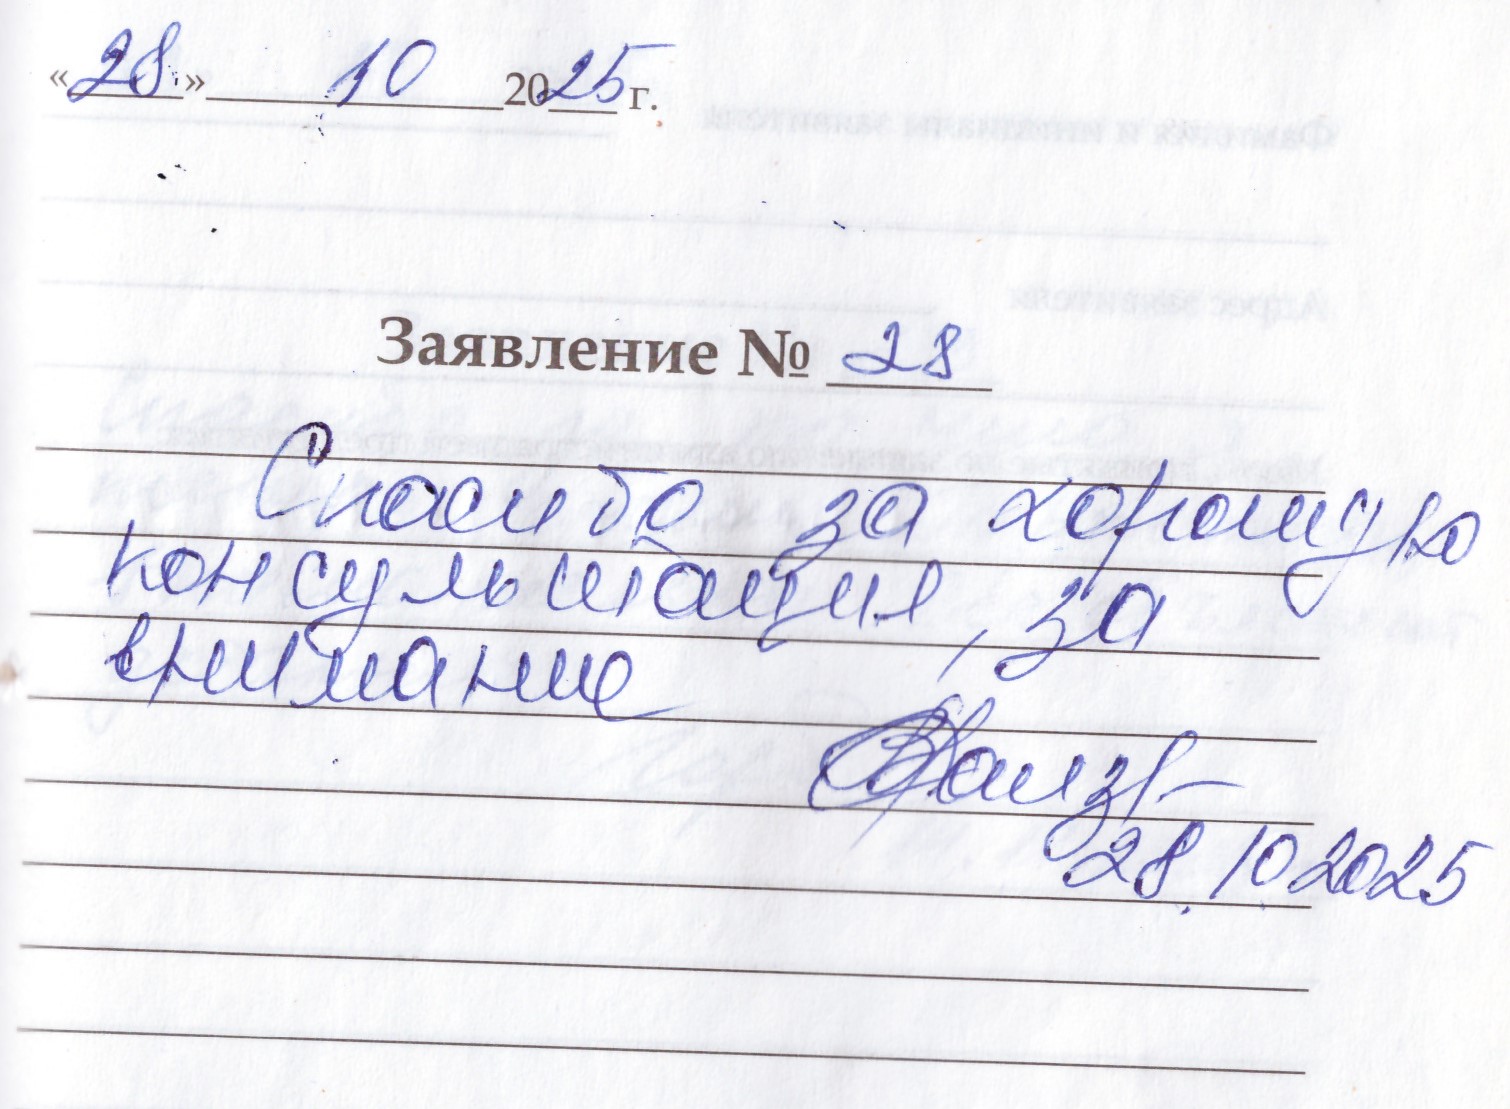 «28» 10 2025 г.
Заявление № 28
Спасибо за хорошую
консультация, за
внимание
28.10.2025